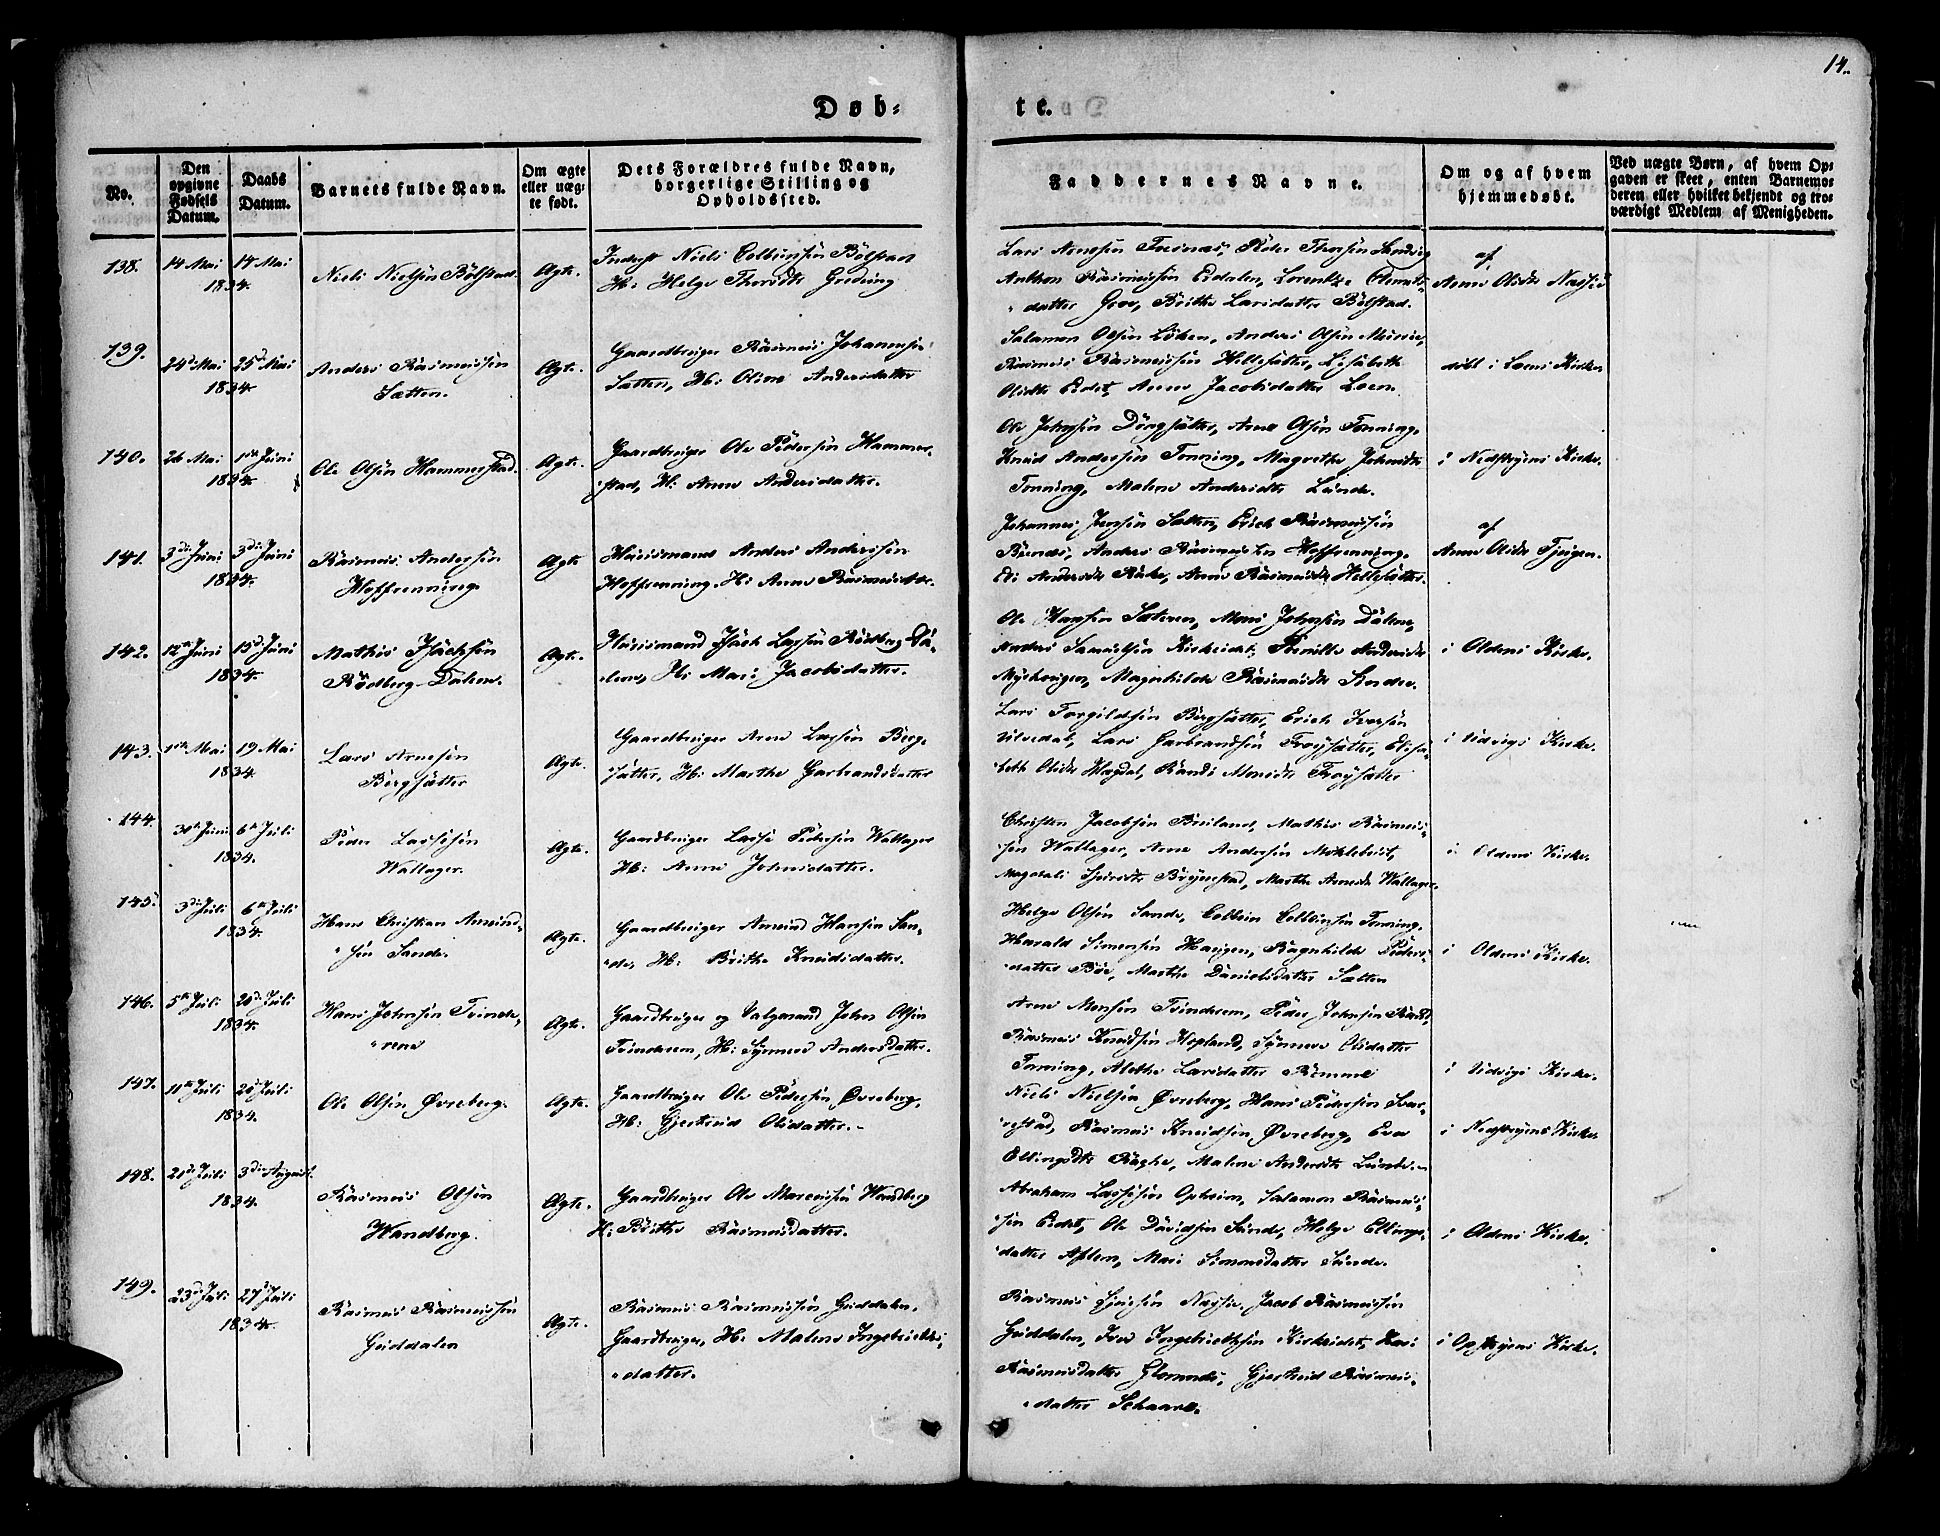 14.
Døb-
te.
No.
Den opgivne Fødsels Datum.
Daabs Datum.
Barnets fulde Navn.
Om ægte eller uægte født.
Dets Forældres fulde Navn, borgerlige Stilling og Opholdssted.
Faddernes Navne.
Om og af hvem hjemmedøbt.
Ved uægte Børn, af hvem Opgaven er skeet, enten Barnemoderen eller hvilket bekjendt og troværdigt Medlem af Menigheden.
138. 14 Mai 14 Mai
1834.
Niels Nielsen Bölstad. Ægte.
Niels Colbensen Bölstad
H: Helge
Lars Arnesen Peder Thorsen
Anthon Rasmussen Eidalen, Lorentze
datter Grov, Brithe Larsdatter Bölstad.
af
Anne Olsdtr
139. 24de Mai 25de Mai
1834.
Anders Rasmussen
Sætten. Ægte.
Gaardbruger Rasmus Johannesen
Sætten, H: Oline Andersdatter
Salamon Olsen Löken, Anders Olsen
Rasmus Rasmussen Hellesætter, Lisabeth
Olsdtr Eidet, Anne Jacobsdatter Loen.
döbt i Loens Kirke.
140. 26 Mai 1ste Juni
1834.
Ole Olsen Hammerstad. Ægte.
Gaardbruger Ole Pedersen Hammer-
stad, H: Anne Andersdatter.
Ole Johnsen Arne Olsen Tonning,
Knud Andersen Tonning, Magrethe Johnsdtr
Tonning, Malene Andersdtr Lunde.
i Nedstryens Kirke.
141. 3die Juni 3die Juni
1834.
Rasmus Andersen
Hoffrenning. Ægte
Huusmand Anders Andersen
Hoffrenning. H: Anne Rasmusdtr.
Johannes Jensen Sætten, Erich Rasmussen
Anders Rasmussen Hoffrenning.
Andersdtr Anne Rasmusdtr Hellesætter.
af
Anne Olsdtr
142. 12te Juni 15de Juni
1834.
Mathis Isachsen
Rödberg-Dalen. Ægte.
Huusmand Isach Larsen Rödberg Da-
len, H: Mari Jacobsdatter.
Ole Hansen Mons Johnsen Dalene,
Anders Samuelsen Kirkeidet, Pernille Andersdtr
Magnhilde Rasmusdtr
i Oldens Kirke.
143. 1ste Mai 19 Mai
1834
Lars Arnesen
Bergsætter Ægte.
Gaardbruger Arne Larsen Berg-
sætter, H: Marthe Garbrandsdatter
Lars Torgildsen Bergsætter, Erich Iversen
Ulvedal, Lars Garbrandsen Froysætter, Elisa-
beth Olsdtr Hægdal, Randi Monsdtr Froysætter
i Udvigs Kirke.
144. 30te Juni 6te Juli
1834.
Peder Lassesen
Wallager. Ægte.
Gaardbruger Lasse Pedersen Wallager
H: Anne Johnsdatter.
Christen Jacobsen Briland, Mathis Rasmus-
sen Wallager, Arne Andersen Möklebust,
Magdali Brynestad, Marthe Arnesdtr Wallager.
i Oldens Kirke.
145. 3die Juli 6te Juli
1834.
Hans Christian Amund-
sen Sande. Ægte.
Gaardbruger Amund Hansen San-
de, H: Brithe Knudsdatter.
Helge Olsen Sande, Colbein Colbeinsen Tonning,
Harald Simensen Haugen, Ragnhilde Peders-
datter Böe, Marthe Danielsdatter Sætten
i Oldens Kirke.
146. 5te Juli 20de Juli
1834.
Hans Johnsen Tvinde-
rene Ægte.
Gaardbruger og Valgmand John Olsen
Tvinderem, H: Synneve Andersdatter.
Arne Monsen Tvinderem, Peder Johnsen
Rasmus Knudsen Hopland, Synneve Olsdatter
Tonning, Alethe Larsdatter Römme
i Udvigs Kirke.
147. 11te Juli 20de Juli
1834.
Ole Olsen Øvreberg. Ægte.
Gaardbruger Ole Pedersen Øvreberg,
H: Gjertrud Olsdatter.
Niels Nielsen Øvreberg, Hans Pedersen Svar-
restad, Rasmus Knudsen Øvreberg, Eva
Ellingsdtr Malene Andersdtr Lunde.
i Nedstryens Kirke
148. 21de Juli 3die August
1834.
Rasmus Olsen
Wandberg. Ægte.
Gaardbruger Ole Marcussen Wandberg
H: Brithe Rasmusdatter.
Abraham Lassesen Opheim, Salamon Rasmus-
sen Eidet, Ole Davidsen Sunde, Helge Ellings-
datter Aflem, Mari Simonsdatter Sunde.
i Oldens Kirke.
149. 23de Juli 27de Juli
1834.
Rasmus Rasmussen
Guddalen Ægte.
Rasmus Rasmussen Guddalen,
Gaardbruger, H: Malene Ingebrigts-
datter.
Rasmus Jacob Rasmussen
Guddalen, Iver Ingebrigtsen Kirkeidet, Kari
Rasmusdatter Glomnes, Gjertrud Rasmus-
datter Schaare.
i Opstryens Kirke.